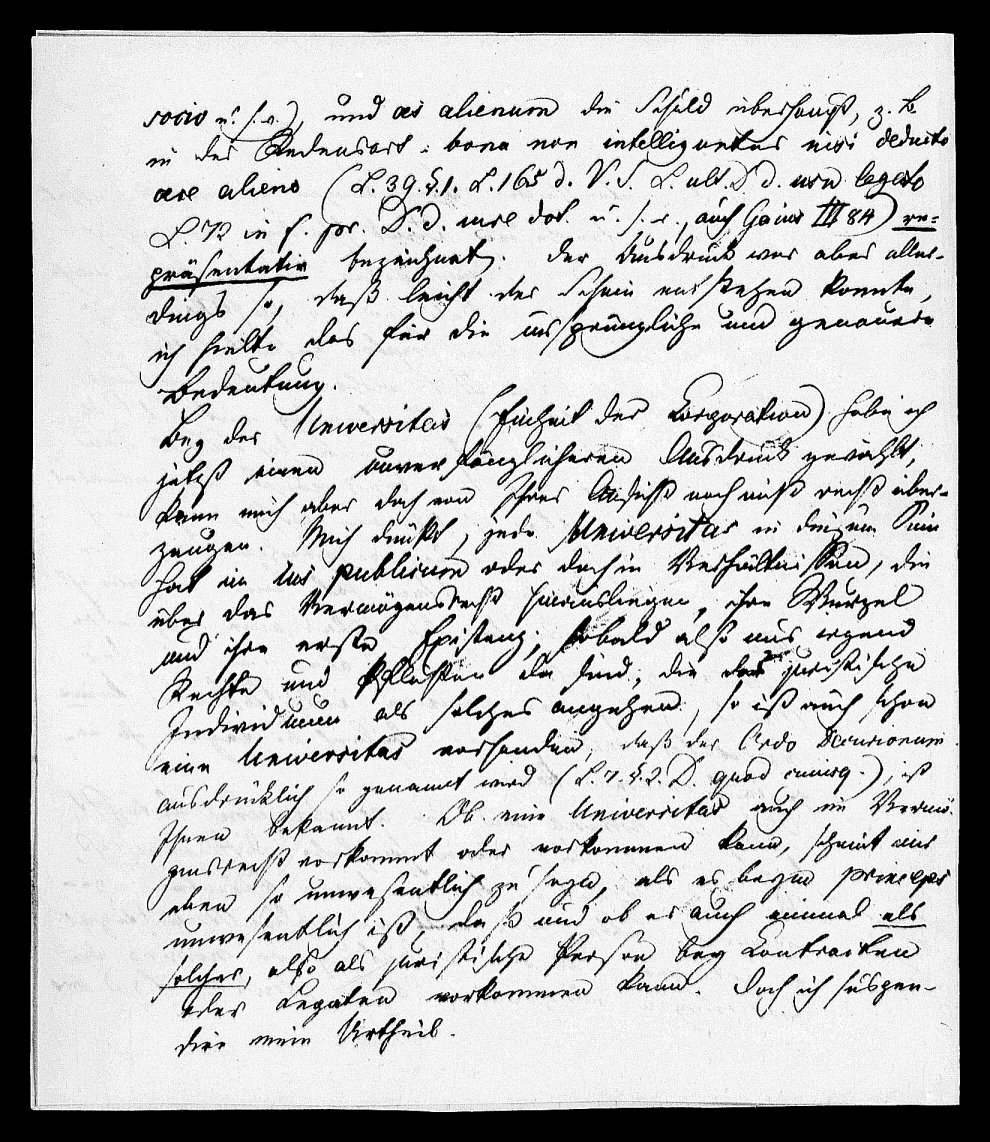 socio u. s. w.), und aes alienum die Schuld überhaupt, z. B.
in der Redensart: bona non intelliguntur nisi deducto
aere alieno (L. 39 §. 1. L. 165 d. V. S. L. ult. D. d. usu legato
L. 72 in f. pr. D. d. iure dot. u. s. w., auch Gaius III 84) re-
präsentativ bezeichnet. Der Ausdruck war aber aller-
dings so, daß leicht der Schein entstehen konnte,
ich hielte das für die ursprüngliche und genauere
Bedeutung.
Bey der Universitas (Einheit der Corporation) habe ich
jetzt einen unverfänglicheren Ausdruck gewählt,
kann mich aber doch von Ihrer Ansicht noch nicht recht über-
zeugen. Mich dünkt, jede Universitas in diesem Sinn
hat im ius publicum oder doch in Verhältnissen, die
über das Vermögensrecht hinausliegen, ihre Wurzel
und ihre erste Existenz; sobald also nur irgend
Rechte und Pflichten da sind, die das juristische
Individuum als solches angehen, so ist auch schon
eine Universitas vorhanden; daß der Ordo Decurionum
ausdrücklich so genannt wird (L. 7. §. 2. D. quod cuiusq.), ist
Ihnen bekannt. Ob eine Universitas auch im Vermö-
gensrecht vorkommt oder vorkommen kann, scheint mir
eben so unwesentlich zu seyn, als es beym princeps
unwesentlich ist, daß und ob er auch einmal als
solcher, also als juristische Person bey Contracten
oder Legaten vorkommen kann. Doch ich suspen-
dire mein Urtheil.